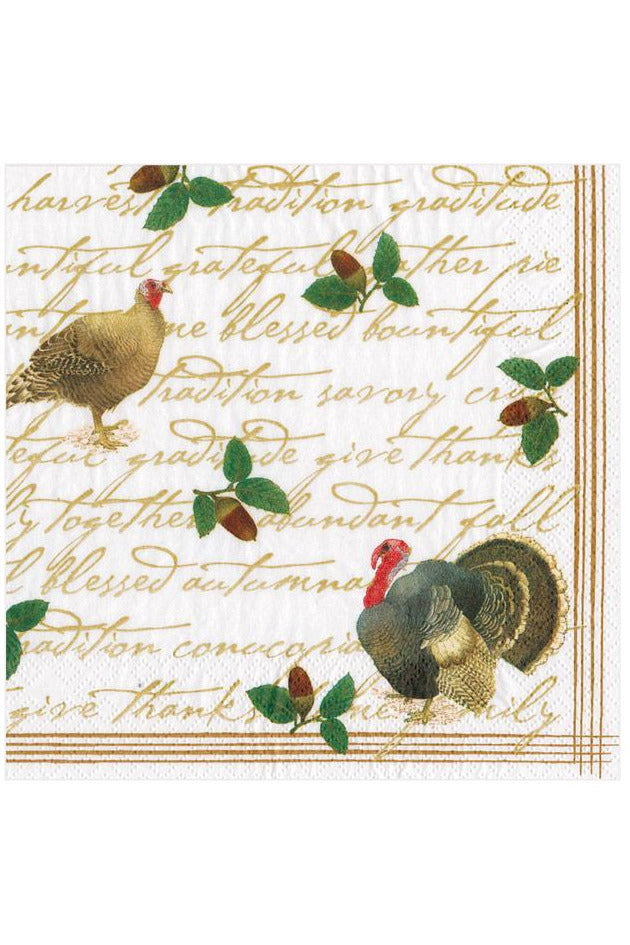 harvest tradition gratitude
ntiful grateful ather pie
me blessed bountiful
tradition savory
teful gratitude give thanks
ly together abundant fall
l blessed autumna
tradition cornucopia
give thanks home family